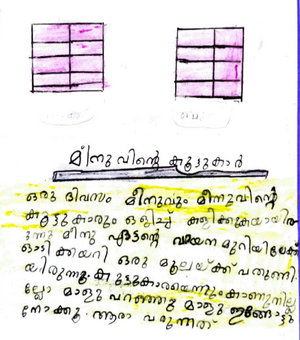 മീനുവിന്റെ കൂട്ടുകാർ
ഒരു ദിവസം മീനുവും മീനുവിന്റെ
കൂട്ടുകാരും ഒളിച്ച് കളിക്കുകയായിരു
ന്നു മീനു ഏട്ടന്റെ വായന മുറിയിലേക്ക്
ഓടിക്കയറി ഒരു മൂലയ്ക്ക് പതുങ്ങി
യിരുന്നു. കൂട്ടുകാരയെന്നും കാണുന്നില്ല
ല്ലോ മാളു പറഞ്ഞു മാളു ഇങ്ങോട്ടു
നോക്കൂ. ആരാ വരുന്നത്